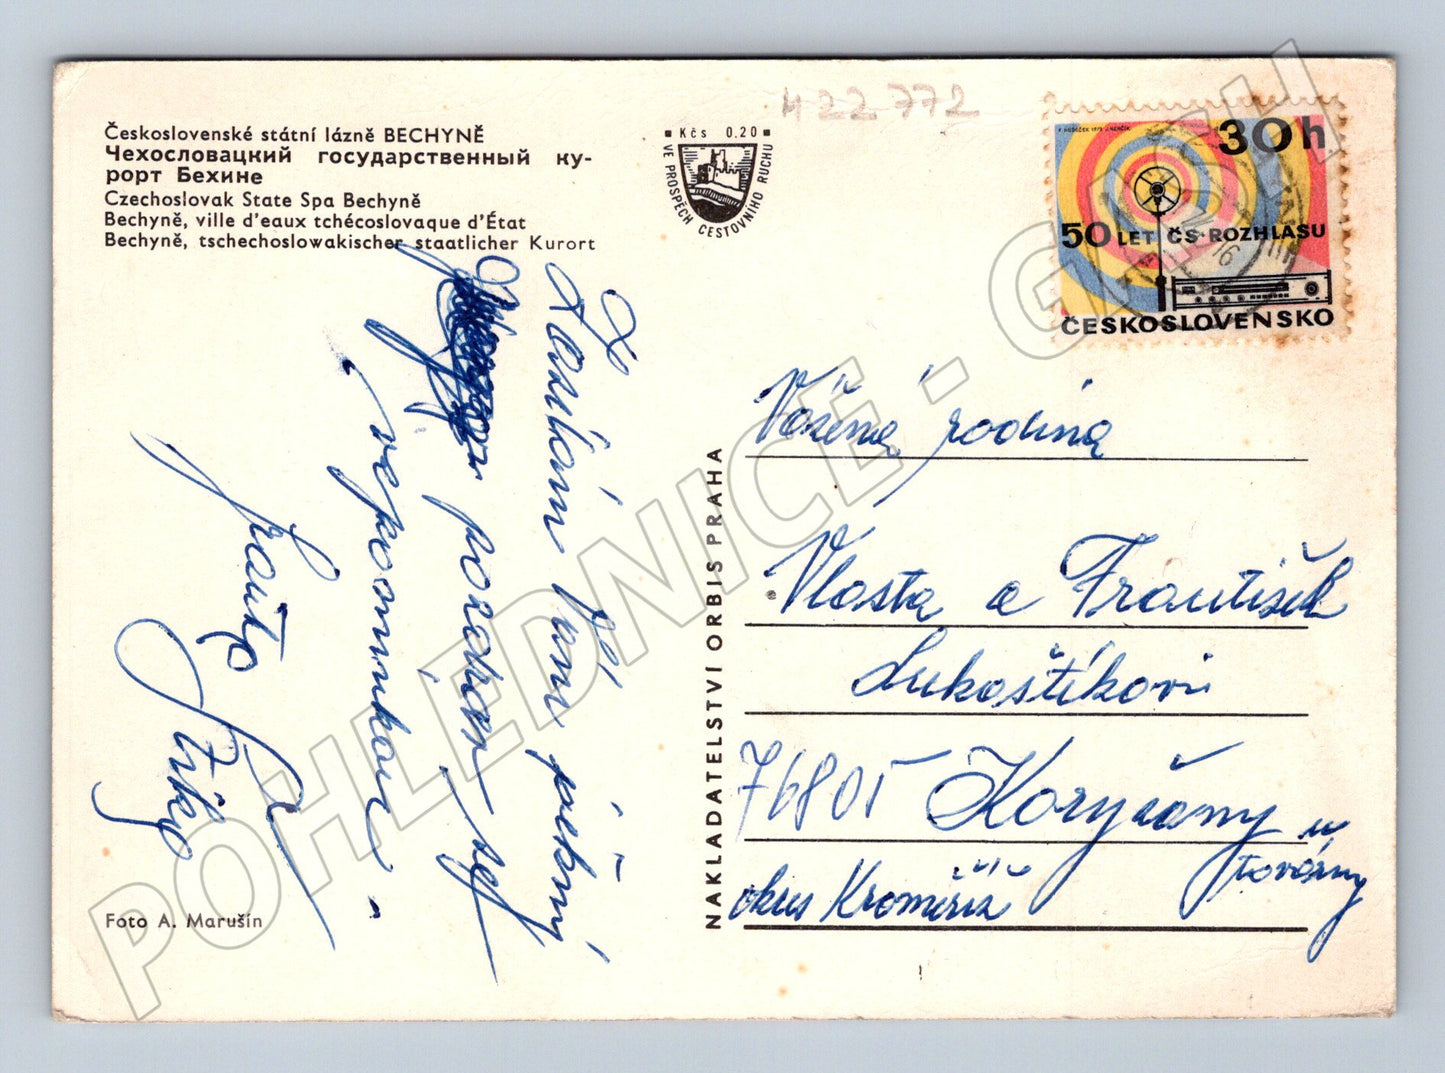 Československé státní lázně BECHYNĚ
Чехословацкий государственный ку-
рорт Бехине
Czechoslovak State Spa Bechyně
Bechyně, ville d'eaux tchécoslovaque d'État
Bechyně, tschechoslowakischer staatlicher Kurort
Kčs 0,20
VE PROSPĚCH CESTOVNÍHO RUCHU
422772
30h
50 LET ČS. ROZHLASU
ČESKOSLOVENSKO
Z
Vám pěkný
pozdrav
vzpomínkou
Jirka
NAKLADATELSTVÍ ORBIS PRAHA
Vážená rodina
Vlasta a František
Lukaštíkovi
76805 Koryčany
u továrny
okres Kroměříž
Foto A. Marušín
POHLEDNICE - GACH